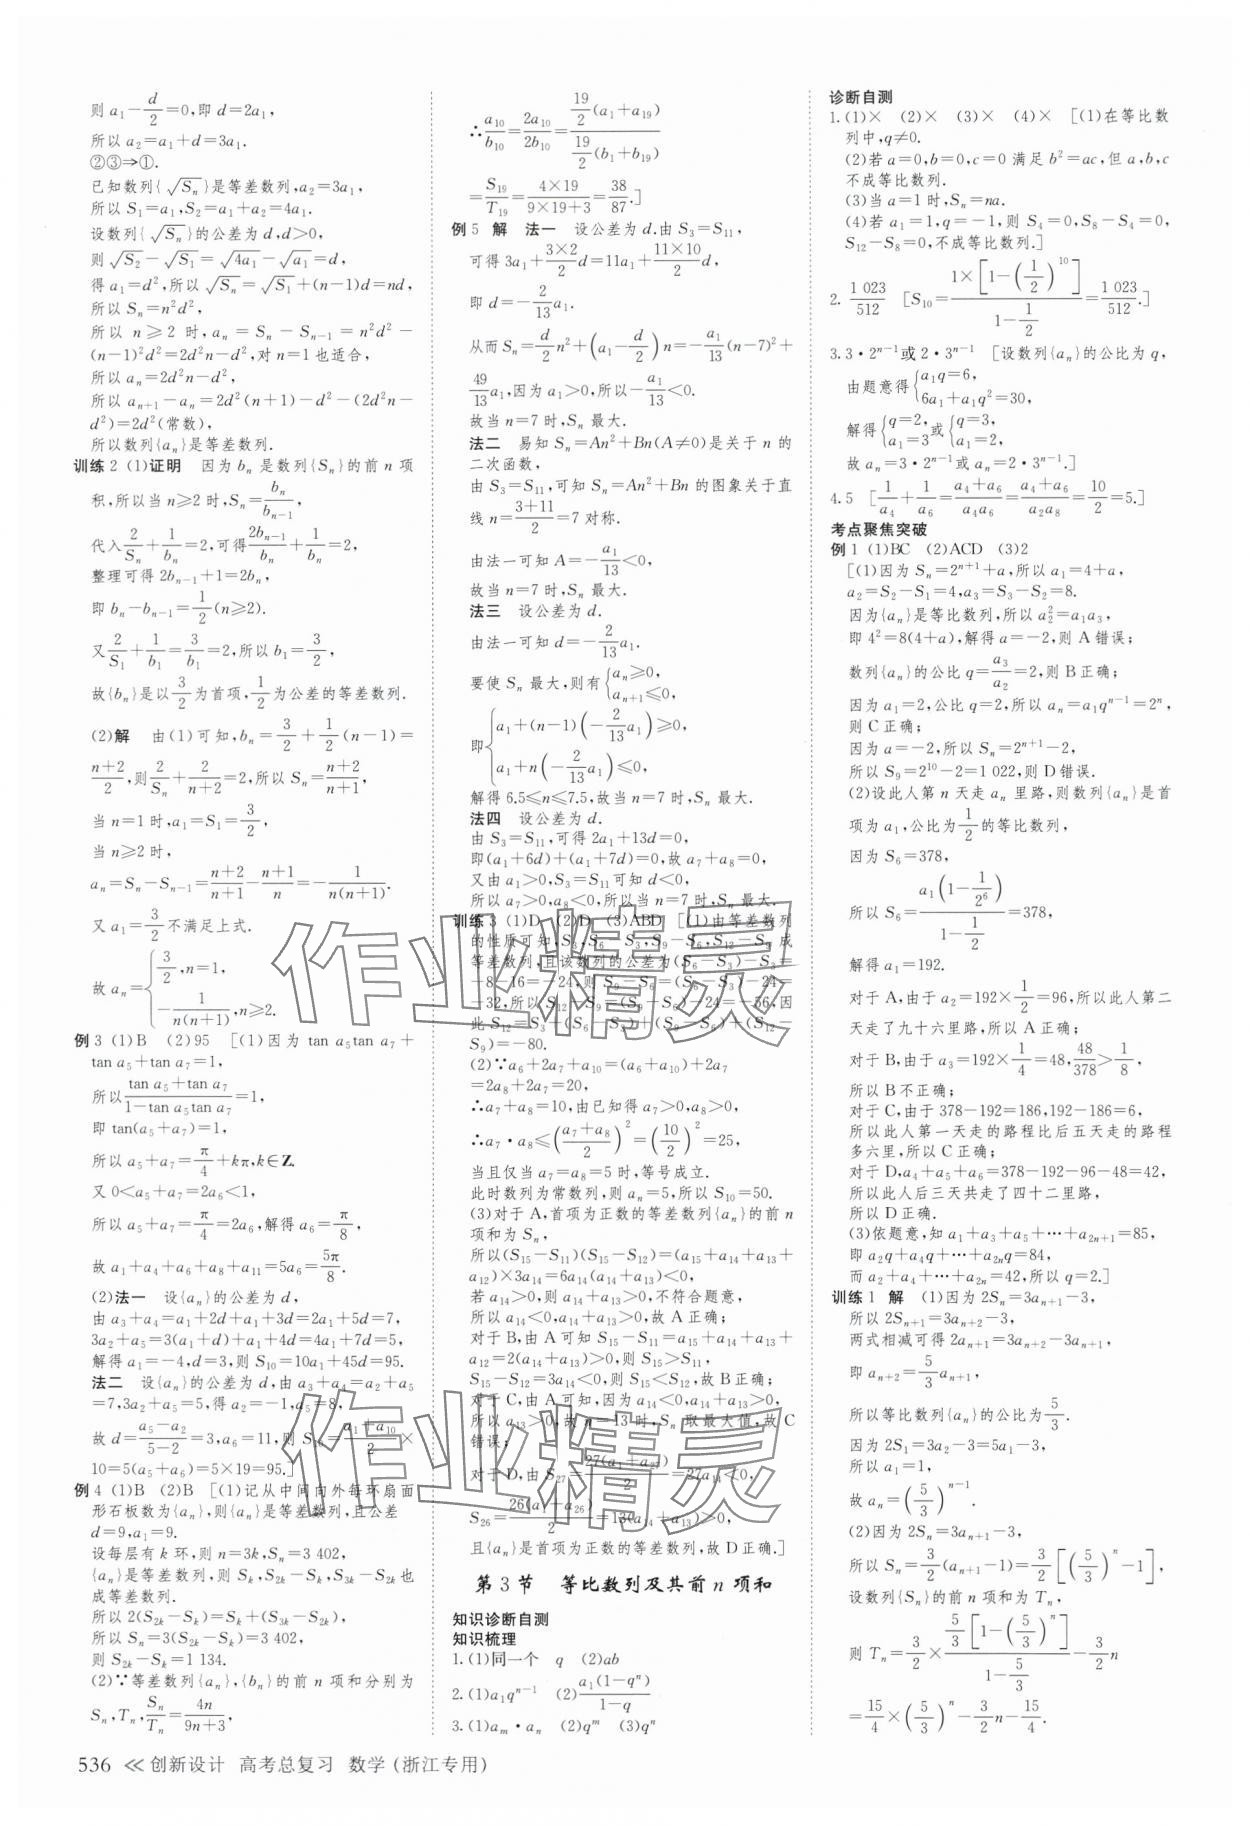 则 a₁－d/2＝0,即 d＝2a₁,
所以 a₂＝a₁＋d＝3a₁.
②③⇒①.
已知数列{√Sₙ}是等差数列,a₂＝3a₁,
所以 S₁＝a₁,S₂＝a₁＋a₂＝4a₁.
设数列{√Sₙ}的公差为 d,d＞0,
则√S₂－√S₁＝√(4a₁)－√a₁＝d,
得 a₁＝d²,所以√Sₙ＝√S₁＋(n－1)d＝nd,
所以 Sₙ＝n²d²,
所以 n≥2 时,aₙ＝Sₙ－Sₙ₋₁＝n²d²－
(n－1)²d²＝2d²n－d²,对 n＝1也适合,
所以 aₙ＝2d²n－d²,
所以 aₙ₊₁－aₙ＝2d²(n＋1)－d²－(2d²n－
d²)＝2d²(常数),
所以数列{aₙ}是等差数列.
训练2 (1)证明 因为 bₙ 是数列{Sₙ}的前 n 项
积,所以当 n≥2 时,Sₙ＝bₙ/bₙ₋₁,
代入2/Sₙ＋1/bₙ＝2,可得2bₙ₋₁/bₙ＋1/bₙ＝2,
整理可得 2bₙ₋₁＋1＝2bₙ,
即 bₙ－bₙ₋₁＝1/2(n≥2).
又2/S₁＋1/b₁＝3/b₁＝2,所以 b₁＝3/2,
故{bₙ}是以3/2为首项,1/2为公差的等差数列.
(2)解 由(1)可知,bₙ＝3/2＋1/2(n－1)＝
(n＋2)/2,则2/Sₙ＋2/(n＋2)＝2,所以 Sₙ＝(n＋2)/(n＋1),
当 n＝1 时,a₁＝S₁＝3/2,
当 n≥2 时,
aₙ＝Sₙ－Sₙ₋₁＝(n＋2)/(n＋1)－(n＋1)/n＝－1/(n(n＋1)).
又 a₁＝3/2不满足上式.
故 aₙ＝{3/2,n＝1,
－1/(n(n＋1)),n≥2.
例3 (1)B (2)95 [(1)因为 tan a₅tan a₇＋
tan a₅＋tan a₇＝1,
所以(tan a₅＋tan a₇)/(1－tan a₅tan a₇)＝1,
即 tan(a₅＋a₇)＝1,
所以 a₅＋a₇＝π/4＋kπ,k∈Z.
又 0＜a₅＋a₇＝2a₆＜1,
所以 a₅＋a₇＝π/4＝2a₆,解得 a₆＝π/8,
故 a₁＋a₄＋a₆＋a₈＋a₁₁＝5a₆＝5π/8.
(2)法一 设{aₙ}的公差为 d,
由 a₃＋a₄＝a₁＋2d＋a₁＋3d＝2a₁＋5d＝7,
3a₂＋a₅＝3(a₁＋d)＋a₁＋4d＝4a₁＋7d＝5,
解得 a₁＝－4,d＝3,则 S₁₀＝10a₁＋45d＝95.
法二 设{aₙ}的公差为 d,由 a₃＋a₄＝a₂＋a₅
＝7,3a₂＋a₅＝5,得 a₂＝－1,a₅＝8,
故 d＝(a₅－a₂)/(5－2)＝3,a₆＝11,则 S₁₀＝(a₁＋a₁₀)/2×
10＝5(a₅＋a₆)＝5×19＝95.]
例4 (1)B (2)B [(1)记从中间向外每环扇面
形石板数为{aₙ},则{aₙ}是等差数列,且公差
d＝9,a₁＝9.
设每层有 k 环,则 n＝3k,Sₙ＝3 402,
{aₙ}是等差数列,则 Sₖ,S₂ₖ－Sₖ,S₃ₖ－S₂ₖ也
成等差数列.
所以 2(S₂ₖ－Sₖ)＝Sₖ＋(S₃ₖ－S₂ₖ),
所以 Sₙ＝3(S₂ₖ－Sₖ)＝3 402,
则 S₂ₖ－Sₖ＝1 134.
(2)∵等差数列{aₙ},{bₙ}的前 n 项和分别为
Sₙ,Tₙ,Sₙ/Tₙ＝4n/(9n＋3),
∴a₁₀/b₁₀＝2a₁₀/2b₁₀＝(19/2(a₁＋a₁₉))/(19/2(b₁＋b₁₉))
＝S₁₉/T₁₉＝(4×19)/(9×19＋3)＝38/87.]
例5 解 法一 设公差为 d.由 S₃＝S₁₁,
可得 3a₁＋(3×2)/2 d＝11a₁＋(11×10)/2 d,
即 d＝－2/13 a₁.
从而 Sₙ＝d/2 n²＋(a₁－d/2)n＝－a₁/13(n－7)²＋
49/13 a₁,因为 a₁＞0,所以－a₁/13＜0.
故当 n＝7 时,Sₙ 最大.
法二 易知 Sₙ＝An²＋Bn(A≠0)是关于 n 的
二次函数,
由 S₃＝S₁₁,可知 Sₙ＝An²＋Bn 的图象关于直
线 n＝(3＋11)/2＝7 对称.
由法一可知 A＝－a₁/13＜0,
故当 n＝7 时,Sₙ 最大.
法三 设公差为 d.
由法一可知 d＝－2/13 a₁.
要使 Sₙ 最大,则有{aₙ≥0,
aₙ₊₁≤0,
即{a₁＋(n－1)(－2/13 a₁)≥0,
a₁＋n(－2/13 a₁)≤0,
解得 6.5≤n≤7.5,故当 n＝7 时,Sₙ 最大.
法四 设公差为 d.
由 S₃＝S₁₁,可得 2a₁＋13d＝0,
即(a₁＋6d)＋(a₁＋7d)＝0,故 a₇＋a₈＝0,
又由 a₁＞0,S₃＝S₁₁可知 d＜0,
所以 a₇＞0,a₈＜0,所以当 n＝7 时,Sₙ 最大.
训练3 (1)D (2)D (3)ABD [(1)由等差数列
的性质可知,S₃,S₆－S₃,S₉－S₆,S₁₂－S₉ 成
等差数列,且该数列的公差为(S₆－S₃)－S₃＝
－8－16＝－24,则 S₉－S₆＝(S₆－S₃)－24＝
－32,所以 S₁₂－S₉＝(S₉－S₆)－24＝－56,因
此 S₁₂＝S₃＋(S₆－S₃)＋(S₉－S₆)＋(S₁₂－
S₉)＝－80.
(2)∵a₆＋2a₇＋a₁₀＝(a₆＋a₁₀)＋2a₇
＝2a₈＋2a₇＝20,
∴a₇＋a₈＝10,由已知得 a₇＞0,a₈＞0,
∴a₇·a₈≤((a₇＋a₈)/2)²＝(10/2)²＝25,
当且仅当 a₇＝a₈＝5 时,等号成立.
此时数列为常数列,则 aₙ＝5,所以 S₁₀＝50.
(3)对于 A,首项为正数的等差数列{aₙ}的前 n
项和为 Sₙ,
所以(S₁₅－S₁₁)(S₁₅－S₁₂)＝(a₁₅＋a₁₄＋a₁₃＋
a₁₂)×3a₁₄＝6a₁₄(a₁₄＋a₁₃)＜0,
若 a₁₄＞0,则 a₁₄＋a₁₃＞0,不符合题意,
所以 a₁₄＜0,a₁₄＋a₁₃＞0,故 A 正确;
对于 B,由 A 可知 S₁₅－S₁₁＝a₁₅＋a₁₄＋a₁₃＋
a₁₂＝2(a₁₄＋a₁₃)＞0,则 S₁₅＞S₁₁,
S₁₅－S₁₂＝3a₁₄＜0,则 S₁₅＜S₁₂,故 B 正确;
对于 C,由 A 可知,因为 a₁₄＜0,a₁₄＋a₁₃＞0,
所以 a₁₃＞0,故 n＝13 时,Sₙ 取最大值,故 C
错误;
对于 D,由 S₂₇＝27(a₁＋a₂₇)/2＝27a₁₄＜0,
S₂₆＝26(a₁＋a₂₆)/2＝13(a₁₄＋a₁₃)＞0,
且{aₙ}是首项为正数的等差数列,故 D 正确.]
第3节 等比数列及其前 n 项和
知识诊断自测
知识梳理
1.(1)同一个 q (2)ab
2.(1)a₁qⁿ⁻¹ (2)a₁(1－qⁿ)/(1－q)
3.(1)aₘ·aₙ (2)qᵐ (3)qⁿ
诊断自测
1.(1)× (2)× (3)× (4)× [(1)在等比数
列中,q≠0.
(2)若 a＝0,b＝0,c＝0 满足 b²＝ac,但 a,b,c
不成等比数列.
(3)当 a＝1 时,Sₙ＝na.
(4)若 a₁＝1,q＝－1,则 S₄＝0,S₈－S₄＝0,
S₁₂－S₈＝0,不成等比数列.]
2. 1 023/512 [S₁₀＝(1×[1－(1/2)¹⁰])/(1－1/2)＝1 023/512.]
3.3·2ⁿ⁻¹或2·3ⁿ⁻¹ [设数列{aₙ}的公比为 q,
由题意得{a₁q＝6,
6a₁＋a₁q²＝30,
解得{q＝2,a₁＝3或{q＝3,a₁＝2,
故 aₙ＝3·2ⁿ⁻¹或 aₙ＝2·3ⁿ⁻¹.]
4.5 [1/a₄＋1/a₆＝(a₄＋a₆)/a₄a₆＝(a₄＋a₆)/a₂a₈＝10/2＝5.]
考点聚焦突破
例1 (1)BC (2)ACD (3)2
[(1)因为 Sₙ＝2ⁿ⁺¹＋a,所以 a₁＝4＋a,
a₂＝S₂－S₁＝4,a₃＝S₃－S₂＝8.
因为{aₙ}是等比数列,所以 a₂²＝a₁a₃,
即 4²＝8(4＋a),解得 a＝－2,则 A 错误;
数列{aₙ}的公比 q＝a₃/a₂＝2,则 B正确;
因为 a₁＝2,公比 q＝2,所以 aₙ＝a₁qⁿ⁻¹＝2ⁿ,
则 C正确;
因为 a＝－2,所以 Sₙ＝2ⁿ⁺¹－2,
所以 S₉＝2¹⁰－2＝1 022,则 D 错误.
(2)设此人第 n 天走 aₙ 里路,则数列{aₙ}是首
项为 a₁,公比为1/2的等比数列,
因为 S₆＝378,
所以 S₆＝(a₁(1－1/2⁶))/(1－1/2)＝378,
解得 a₁＝192.
对于 A,由于 a₂＝192×1/2＝96,所以此人第二
天走了九十六里路,所以 A 正确;
对于 B,由于 a₃＝192×1/4＝48,48/378＞1/8,
所以 B 不正确;
对于 C,由于 378－192＝186,192－186＝6,
所以此人第一天走的路程比后五天走的路程
多六里,所以 C正确;
对于 D,a₄＋a₅＋a₆＝378－192－96－48＝42,
所以此人后三天共走了四十二里路,
所以 D 正确.
(3)依题意,知 a₁＋a₃＋a₅＋⋯＋a₂ₙ₊₁＝85,
即 a₂q＋a₄q＋⋯＋a₂ₙq＝84,
而 a₂＋a₄＋⋯＋a₂ₙ＝42,所以 q＝2.]
训练1 解 (1)因为 2Sₙ＝3aₙ₊₁－3,
所以 2Sₙ₊₁＝3aₙ₊₂－3,
两式相减可得 2aₙ₊₁＝3aₙ₊₂－3aₙ₊₁,
即 aₙ₊₂＝5/3 aₙ₊₁,
所以等比数列{aₙ}的公比为5/3.
因为 2S₁＝3a₂－3＝5a₁－3,
所以 a₁＝1,
故 aₙ＝(5/3)ⁿ⁻¹.
(2)因为 2Sₙ＝3aₙ₊₁－3,
所以 Sₙ＝3/2(aₙ₊₁－1)＝3/2[(5/3)ⁿ－1],
设数列{Sₙ}的前 n 项和为 Tₙ,
则 Tₙ＝3/2×(5/3[1－(5/3)ⁿ])/(1－5/3)－3/2 n
＝15/4×(5/3)ⁿ－3/2 n－15/4.
536 ≪ 创新设计 高考总复习 数学(浙江专用)
作业精灵
作业精灵